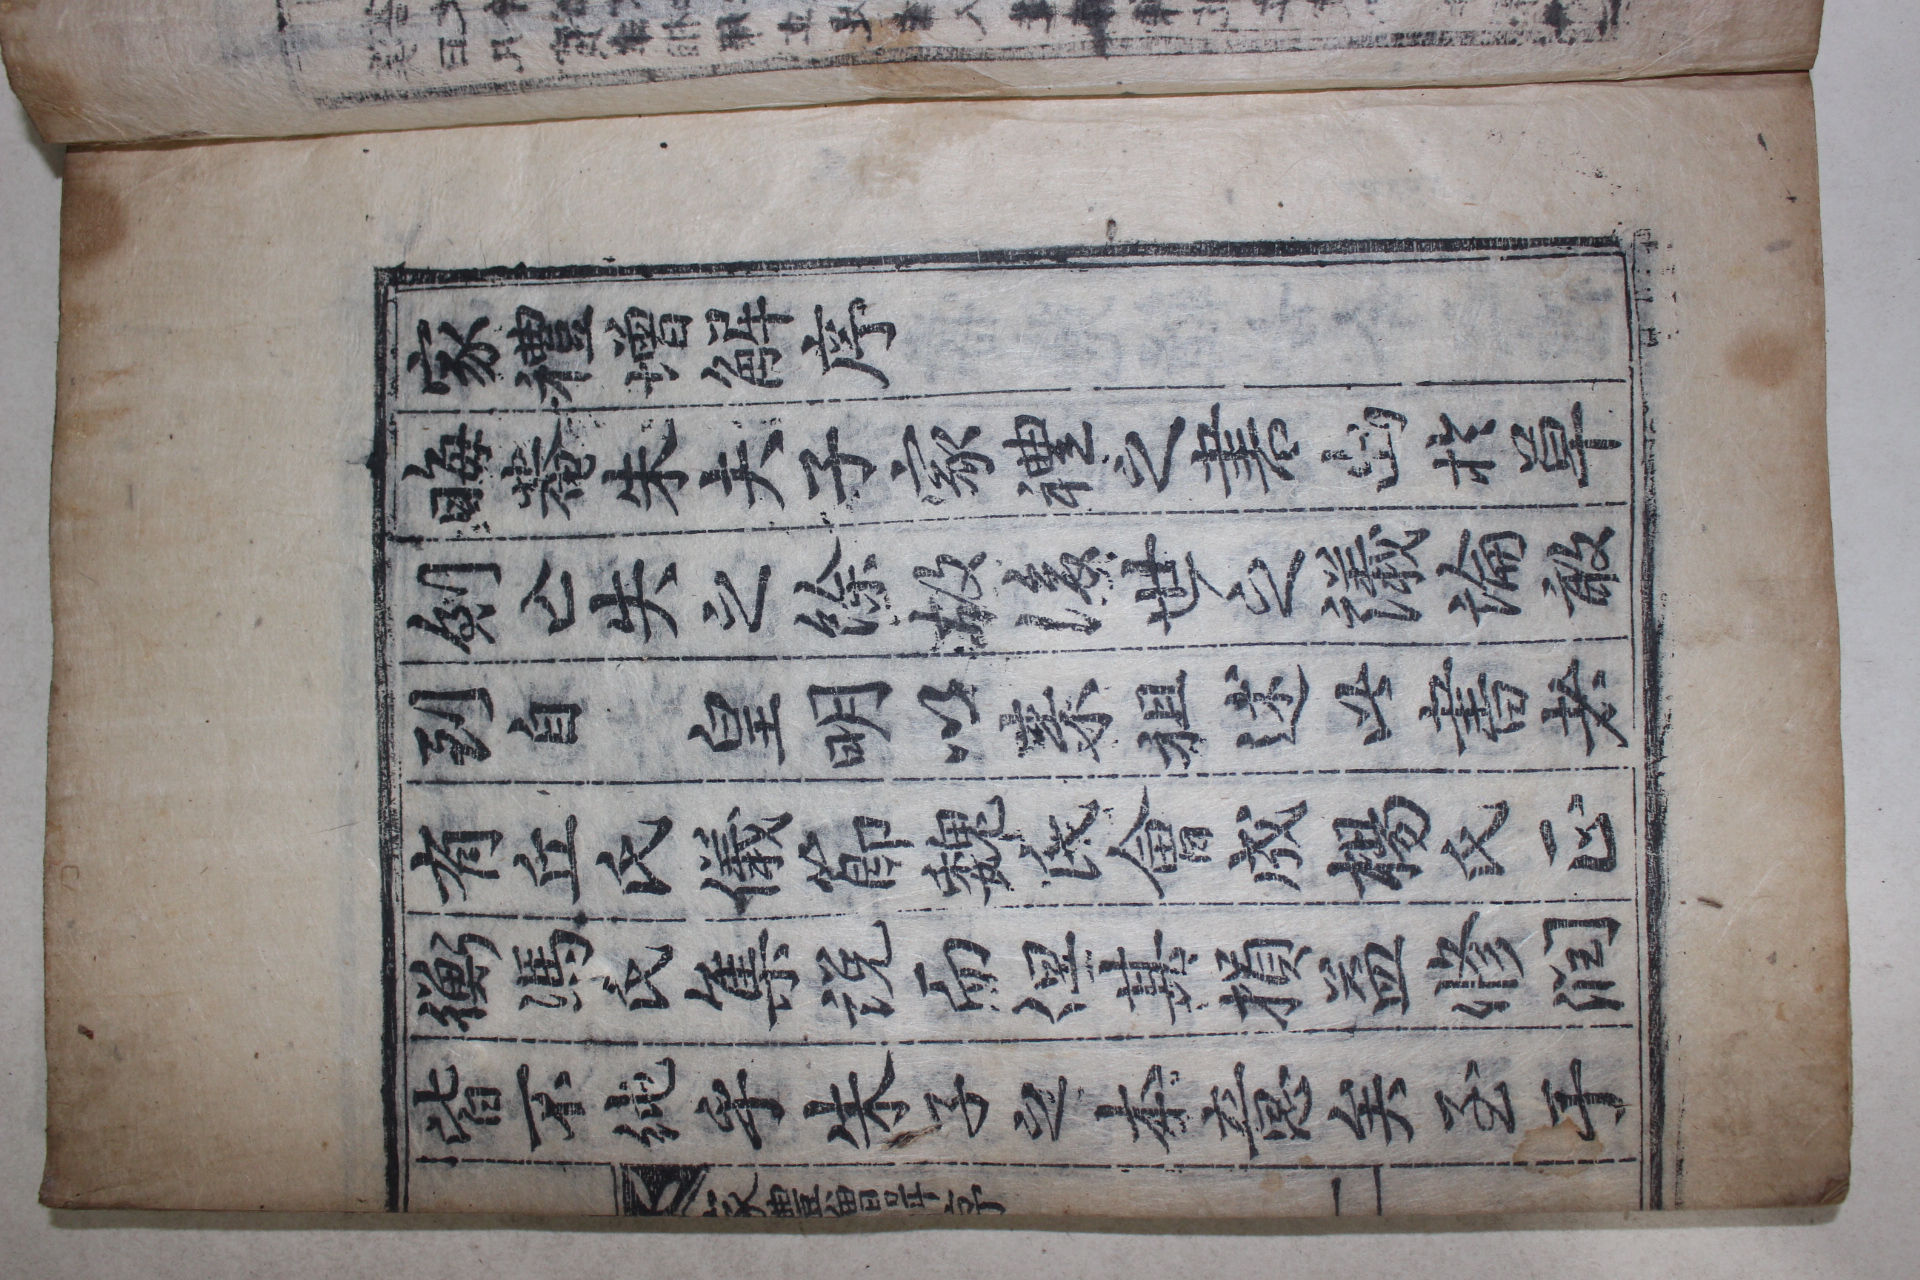 家禮增解序
晦菴朱夫子家禮之書出於草
創亡失之餘故後世之議論敢
到自　皇明以來祖述此書者
有丘氏儀節魏氏會成楊氏正
衡馮氏集說而但其損益修潤
皆不純乎朱子之本意矣至于
家禮增解序
一